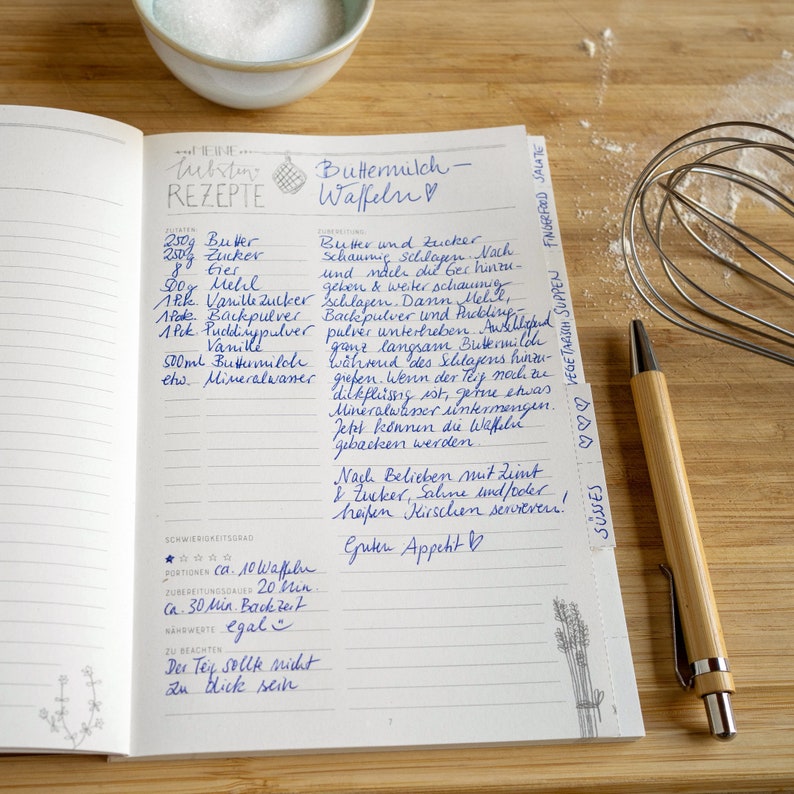 MEINE
liebsten
REZEPTE
Buttermilch-
Waffeln ♡
ZUTATEN:
250g Butter
250g Zucker
8 Eier
500g Mehl
1 Pck. Vanillezucker
1 Pck. Backpulver
1 Pck. Puddingpulver
Vanille
500ml Buttermilch
etw. Mineralwasser
ZUBEREITUNG:
Butter und Zucker
schaumig schlagen. Nach
und nach die Eier hinzu-
geben & weiter schaumig
schlagen. Dann Mehl,
Backpulver und Pudding-
pulver unterheben. Anschließend
ganz langsam Buttermilch
während des Schlagens hinzu-
gießen. Wenn der Teig noch zu
dickflüssig ist, gerne etwas
Mineralwasser untermengen.
Jetzt können die Waffeln
gebacken werden.
Nach Belieben mit Zimt
& Zucker, Sahne und/oder
heißen Kirschen servieren!
Guten Appetit ♡
SCHWIERIGKEITSGRAD
★☆☆☆☆
PORTIONEN ca. 10 Waffeln
ZUBEREITUNGSDAUER 20 Min.
ca. 30 Min. Backzeit
NÄHRWERTE egal ü
ZU BEACHTEN
Der Teig sollte nicht
zu dick sein
7
SALATE
FINGERFOOD
SUPPEN
VEGETARISCH
♡♡♡
SÜSSES